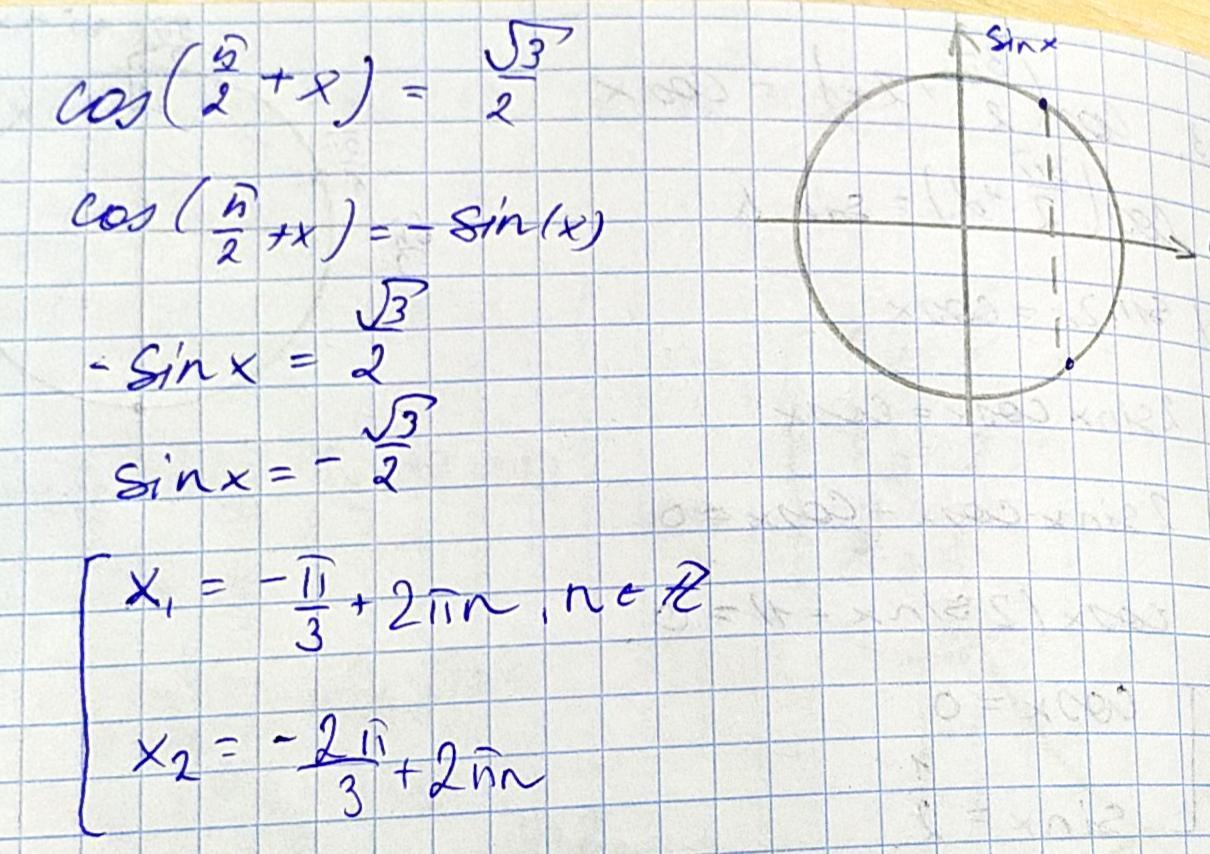 cos(π/2 + x) = √3/2
sin x
cos(π/2 + x) = - sin(x)
- sin x = √3/2
sin x = - √3/2
x₁ = - π/3 + 2πn, n ∈ ℤ
x₂ = - 2π/3 + 2πn